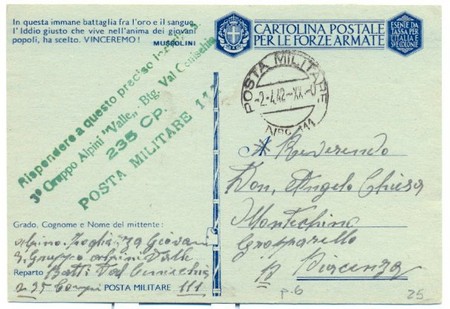 In questa immane battaglia fra l'oro e il sangue,
l'Iddio giusto che vive nell'anima dei giovani
popoli, ha scelto. VINCEREMO!
MUSSOLINI
CARTOLINA POSTALE
PER LE FORZE ARMATE
ESENTE DA
TASSA PER
L'ITALIA E
SPEDIZIONE
Rispondere a questo preciso
3° Gruppo Alpini "Valle" Btg. Val Cenischia
235 CP.
POSTA MILITARE 111
POSTA MILITARE
-2.4.42.XX
111
Reverendo
Don. Angelo Chiesa
Montechino
Gropparello
Piacenza
Grado, Cognome e Nome del mittente:
Alpino Giovanni
3. Gruppo Alpini Valle
Reparto Batt. Val Cenischia
235 Comp. POSTA MILITARE 111
p.6
25